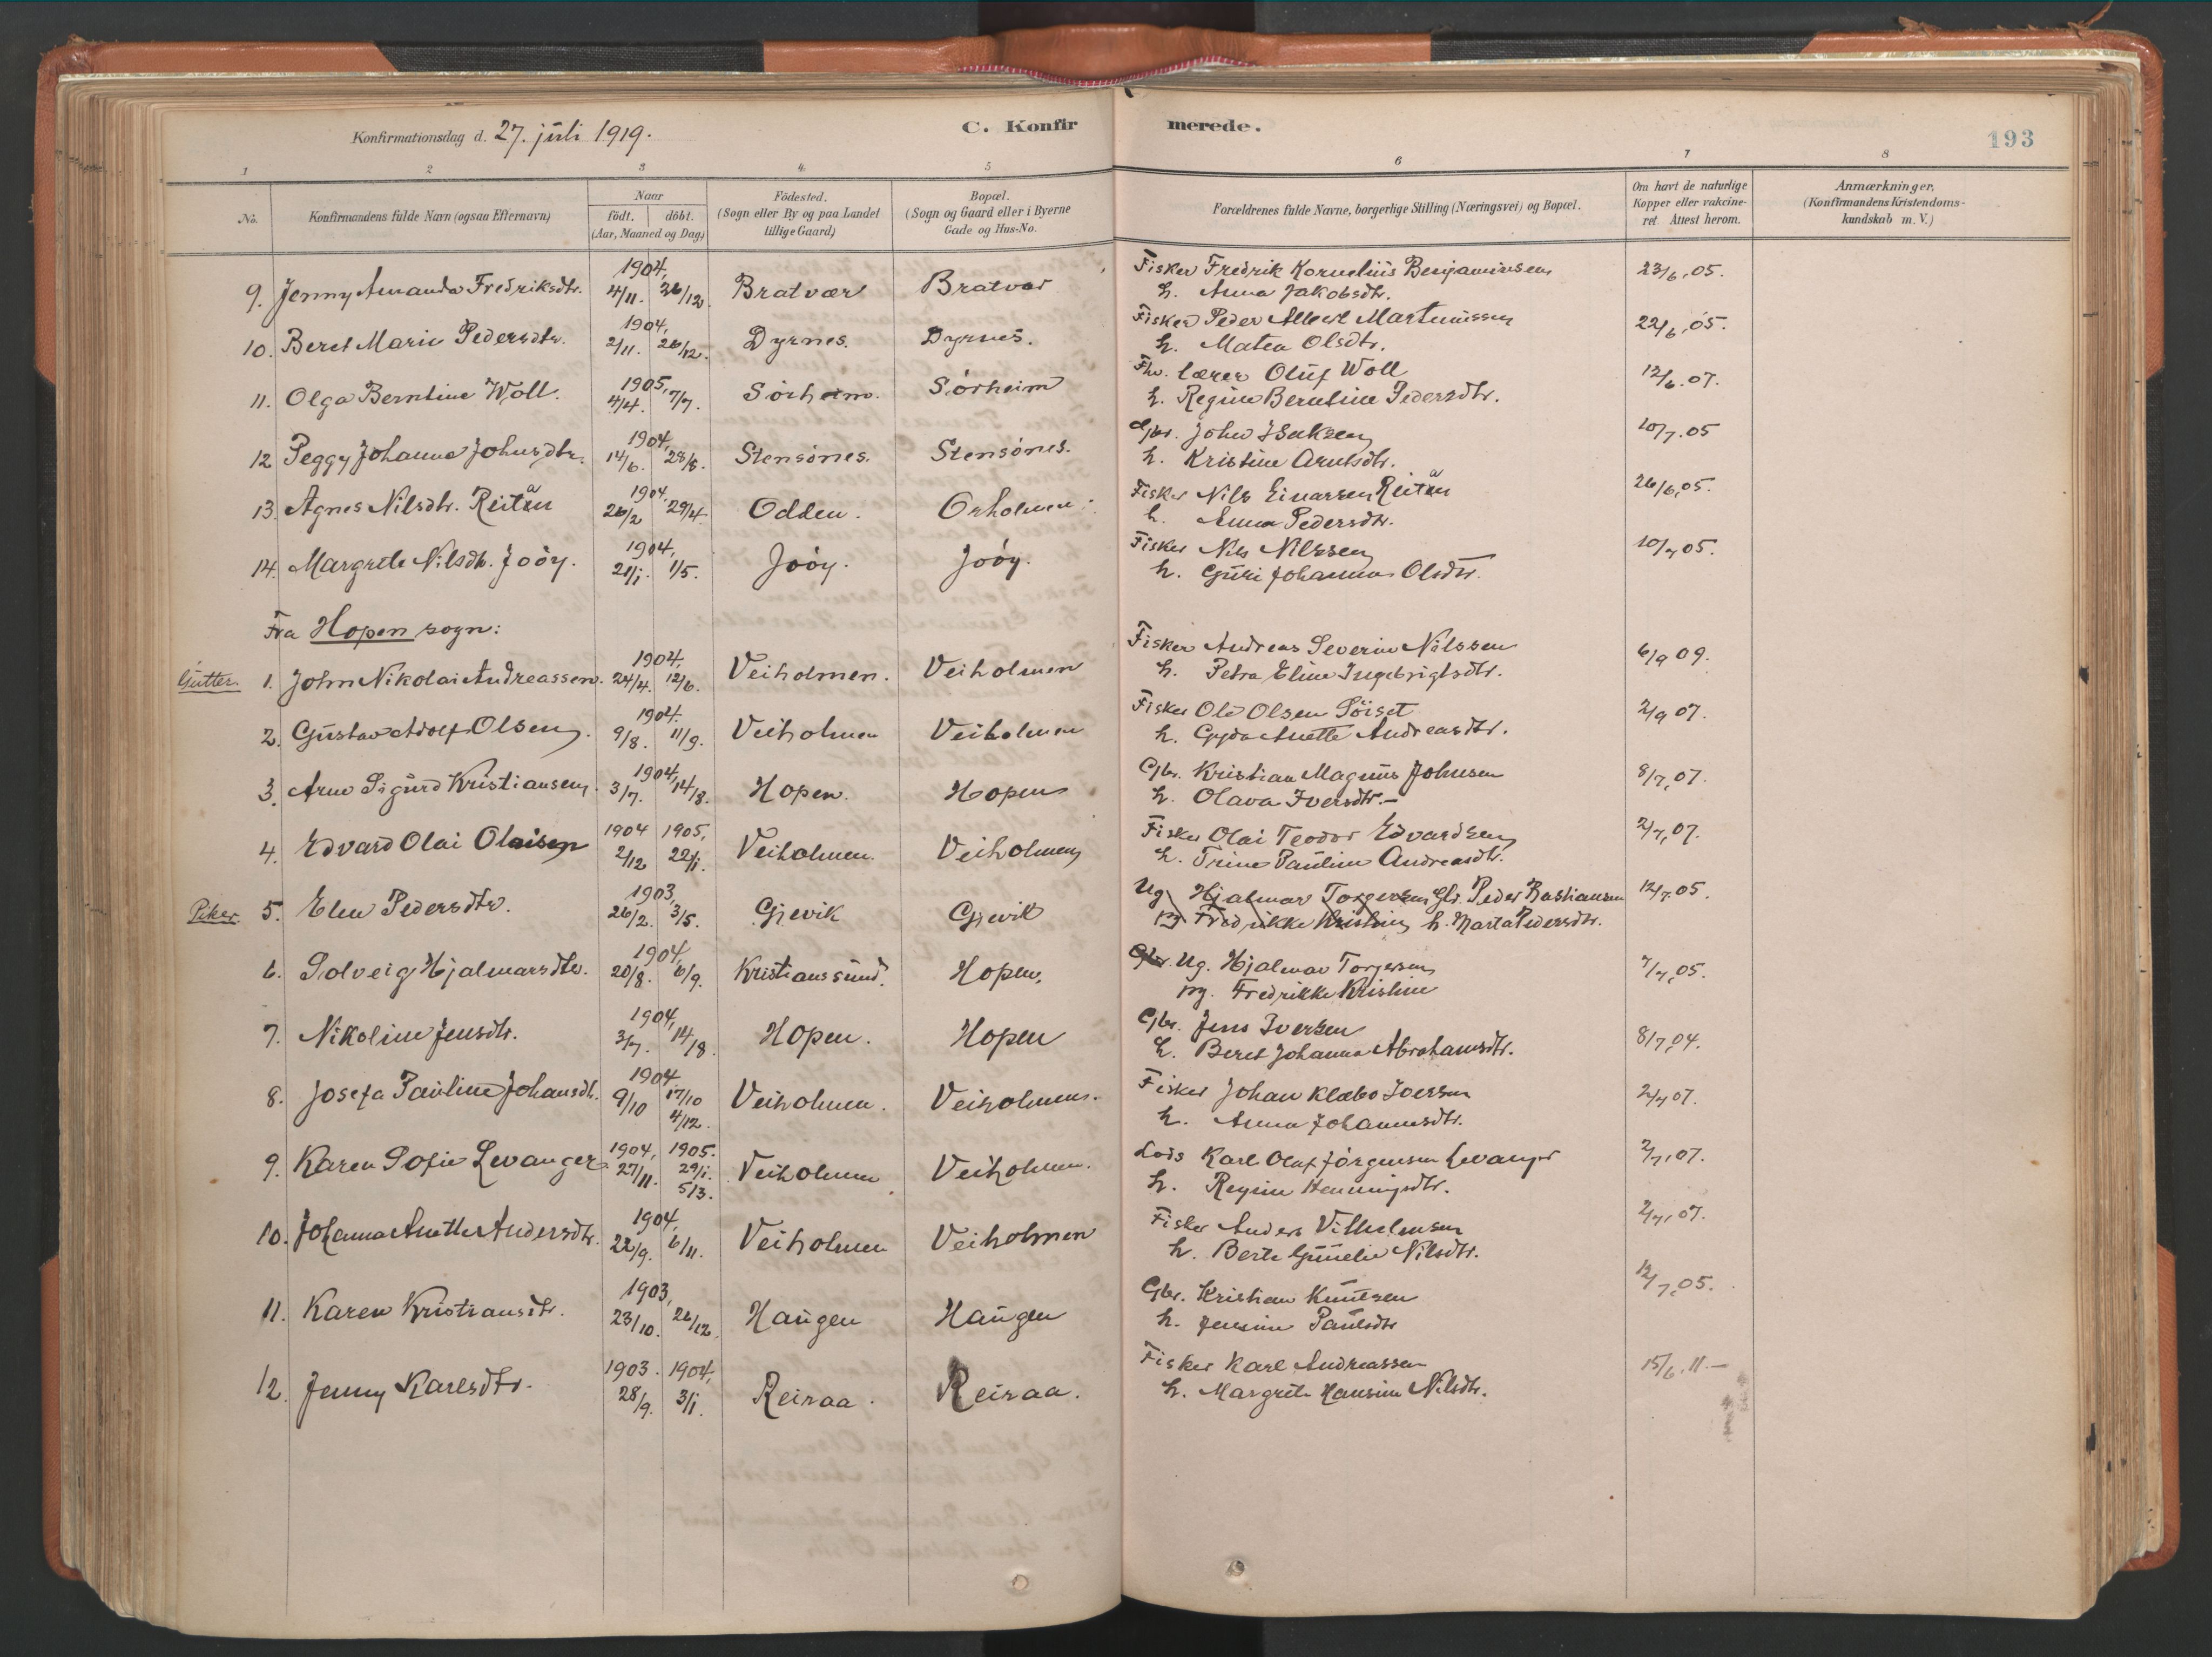 Konfirmationsdag d. 27. juli 1919. C. Konfir merede. 193
1 2 3 4 5 6 7 8
No. Konfirmandens fulde Navn (ogsaa Efternavn) Naar födt. döbt. (Aar, Maaned og Dag) Födested. (Sogn eller By og paa Landet tillige Gaard) Bopæl. (Sogn og Gaard eller i Byerne Gade og Hus-No. Forældrenes fulde Navne, borgerlige Stilling (Næringsvei) og Bopæl. Om havt de naturlige Kopper eller vakcineret. Attest herom. Anmærkninger, (Konfirmandens Kristendomskundskab m. V.)
1904, Fisker Fredrik Kornelius Benjaminsen 23/6.05.
9. Jenny Amanda Fredriksdtr. 4/11. 26/12. Bratvær Bratvær h. Anna Jakobsdtr.
1904, Fisker Peder Albert Martinussen 22/6.05.
10. Beret Marie Pedersdtr. 2/11. 26/12. Dyrnes. Dyrnes. h. Matea Olsdtr.
1905, Fhv. lærer Oluf Woll 12/6.07.
11. Olga Berntine Woll. 4/4. 7/7. Sörheim. Sörheim h. Regine Berntine Pedersdtr.
1904, Gbr. John Isaksen 10/7.05
12 Peggy Johanna Johnsdtr. 14/6. 28/8. Stensönes. Stensönes. h. Kristine Arntsdtr.
1904, Fisker Nils Einarsen Reitan 26/6,05.
13. Agnes Nilsdtr. Reitan 26/2 29/4. Odden. Orholmen. h. Anna Pedersdtr.
1904, Fisker Nils Nilssen 10/7 05.
14. Margrete Nilsdtr. Joöy. 21/1. 1/5. Joöy. Joöy. h. Guri Johanna Olsdtr.
Fra Hopen sogn:
1904, Fisker Andreas Severin Nilssen 6/9 09.
Gutter. 1. John Nikolai Andreassen. 24/4. 12/6. Veiholmen. Veiholmen h. Petra Eline Ingebrigtsdtr.
1904. Fisker Ole Olsen Söiset 2/9 07.
2. Gustav Adolf Olsen. 9/8. 11/9. Veiholmen Veiholmen h. Gyda Anette Andreasdtr.
1904, Gbr. Kristian Magnus Johnsen 8/7,07.
3. Arne Sigurd Kristiansen. 3/7. 14/8. Hopen. Hopen h. Olava Iversdtr.-
1904 1905, Fisker Olai Teodor Edvardsen 2/7,07.
4. Edvard Olai Olaisen 2/12 22/1. Veiholmen. Veiholmen h. Trine Pauline Andreasdtr.
1903, Ug Hjalmar Torgersen Gbr. Peder Bastiansen 12/7.05.
Piker. 5. Elen Pedersdtr. 26/2. 3/5. Gjevik Gjevik pg Fredrikke Kristine h. Marta Pedersdtr.
1904, Gbr. Ug. Hjalmar Torgersen 7/7,05.
6. Solveig Hjalmarsdtr. 20/8. 6/9. Kristianssund. Hopen. pg. Fredrikke Kristine
1904, Gbr. Jens Iversen 8/7,04.
7. Nikoline Jensdtr. 3/7. 14/8. Hopen. Hopen h. Beret Johanna Abrahamsdtr.
1904 Fisker Johan Klæbo Iversen 2/7 07.
8. Josefa Pauline Johansdtr. 9/10 17/10 4/12. Veiholmen. Veiholmen. h. Anna Johannesdtr.
1904, 1905. Lods Karl Olaf Jörgensen Levanger 2/7,07.
9. Karen Sofie Levanger 27/11. 29/1. 5/3. Veiholmen Veiholmen. h. Regine Henningsdtr.
1904, Fisker Anders Vilhelmsen 2/7,07.
10. Johanna Anette Andersdtr. 22/9. 6/11. Veiholmen Veiholmen h. Berte Gunelie Nilsdtr.
1903, Gbr. Kristian Knutsen 12/7,05.
11. Karen Kristiansdtr. 23/10. 26/12. Haugen Haugen h. Jensine Paulsdtr
1903. 1904, Fisker Karl Andreassen 15/6.11.-
12. Jenny Karlsdtr. 28/9. 3/1. Reiraa. Reiraa. h. Margrete Hansine Nilsdtr.